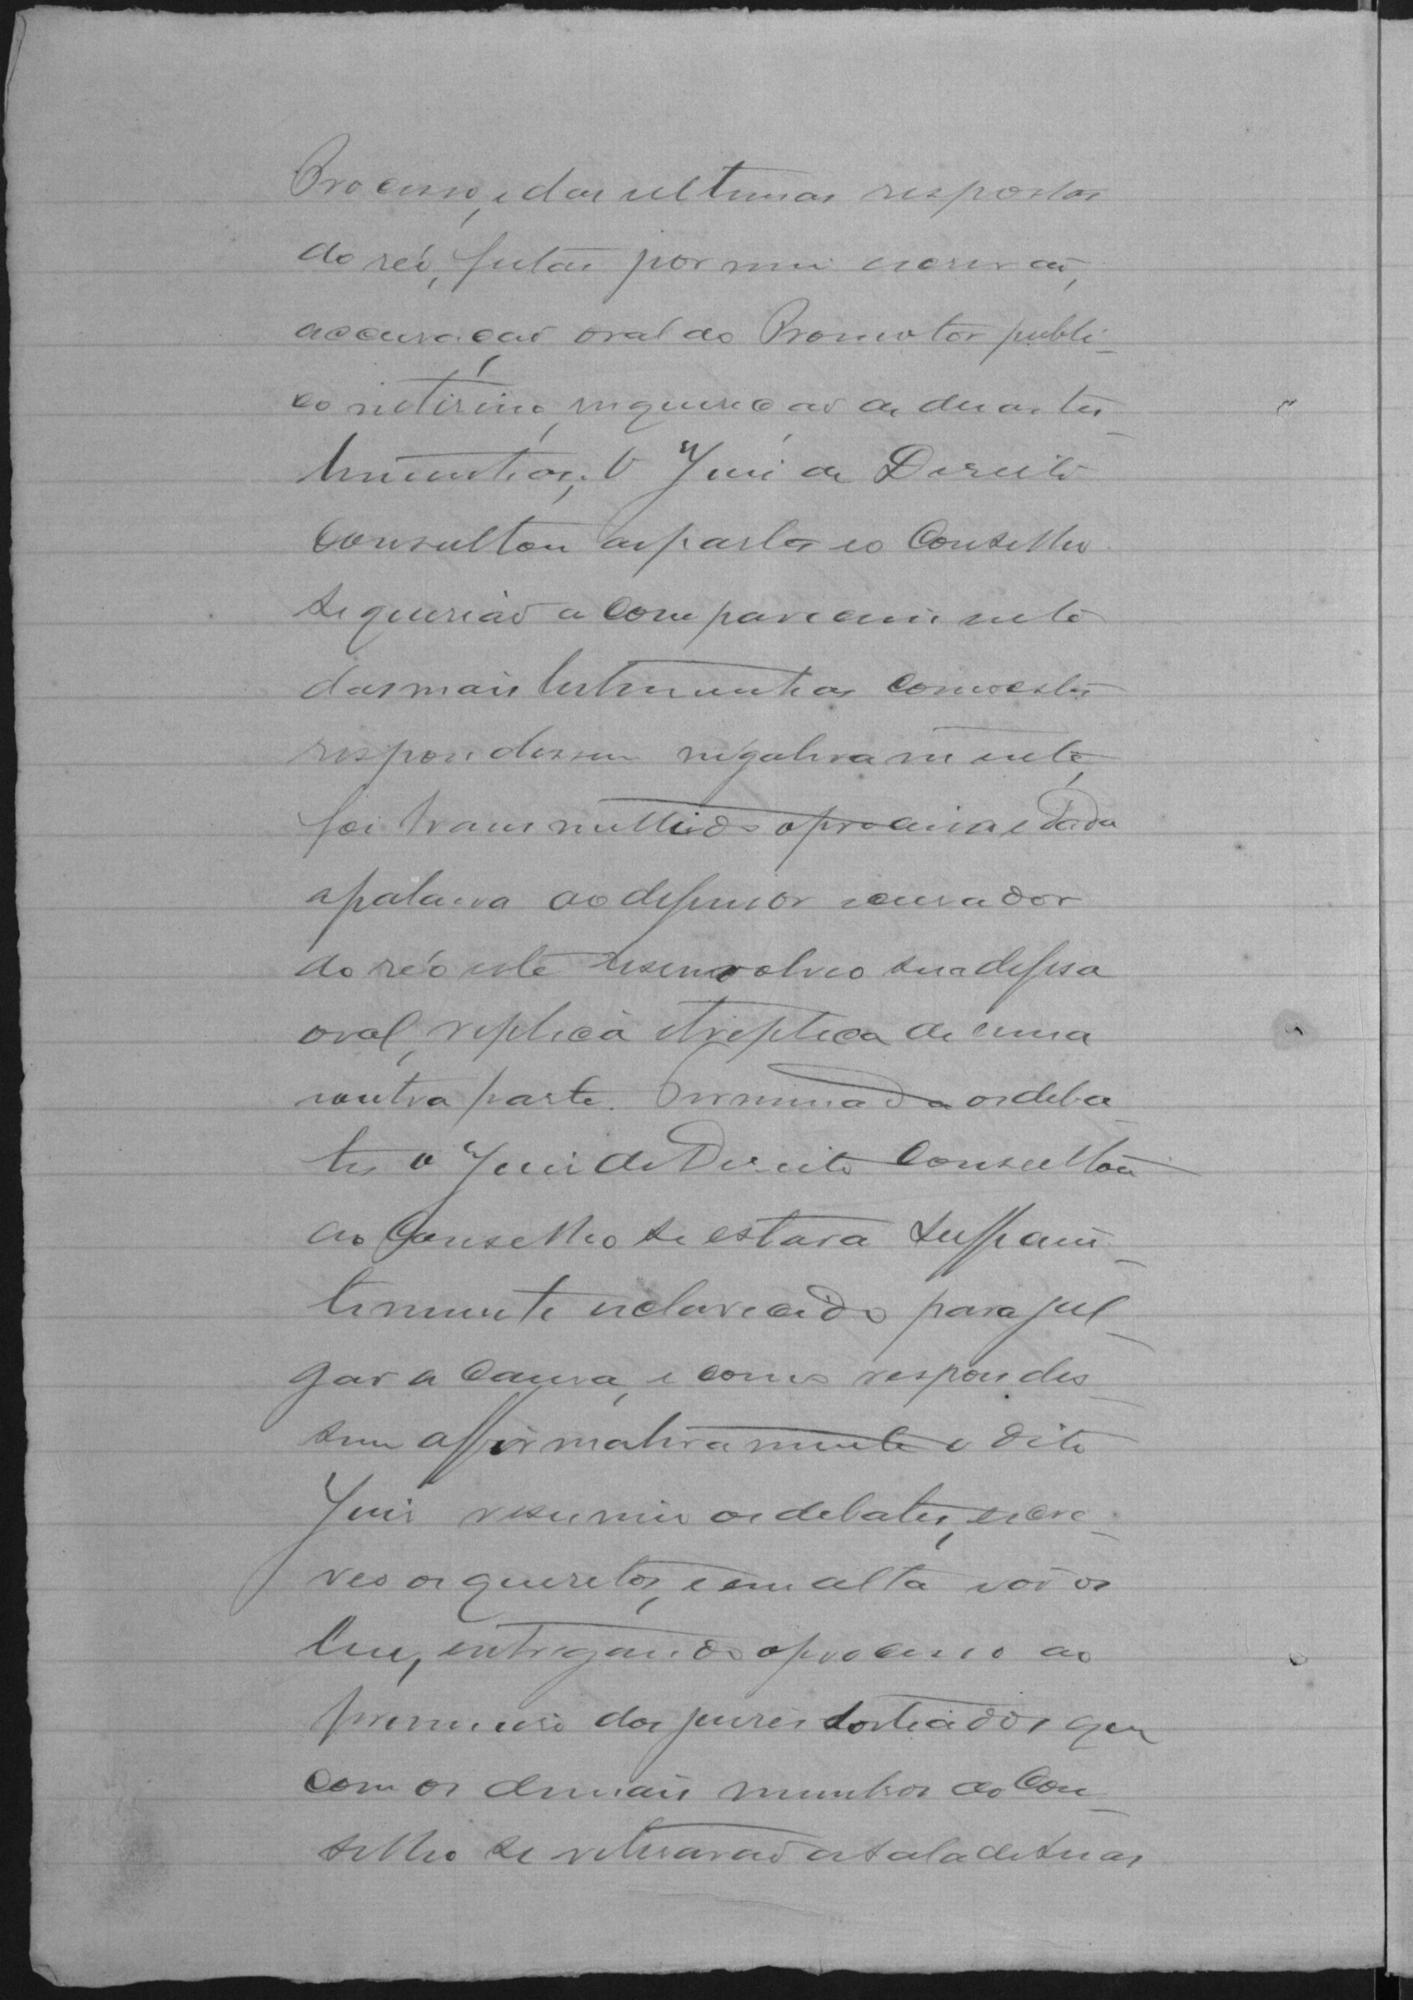 Processo, e das ultimas respostas
do réo, feitas por mim escrivão,
accusação oral do Promotor publi-
co interino, inquirição de duas tes-
temunhas; O Juiz de Direito
consultou as partes e o Conselho
se querião a comparecimento
das mais testemunhas como estes
respondessem negativamente,
foi transmettido o processo e dada
a palavra ao defensor e curador
do réo este desenvolveo sua defesa
oral, replica e treplica de uma
e outra parte. Terminada os deba
tes o Juiz de Direito consultou
ao Conselho se estava sufficien-
temente esclarecido para jul-
gar a causa, e como respondes-
sem affirmativamente o dito
Juiz resumiu os debates, escre-
veo os quesitos, e em alta voz os
leu, entregando o processo ao
primeiro dos juizes sorteados que
com os demais membros do Con-
selho se retirarão a sala de suas